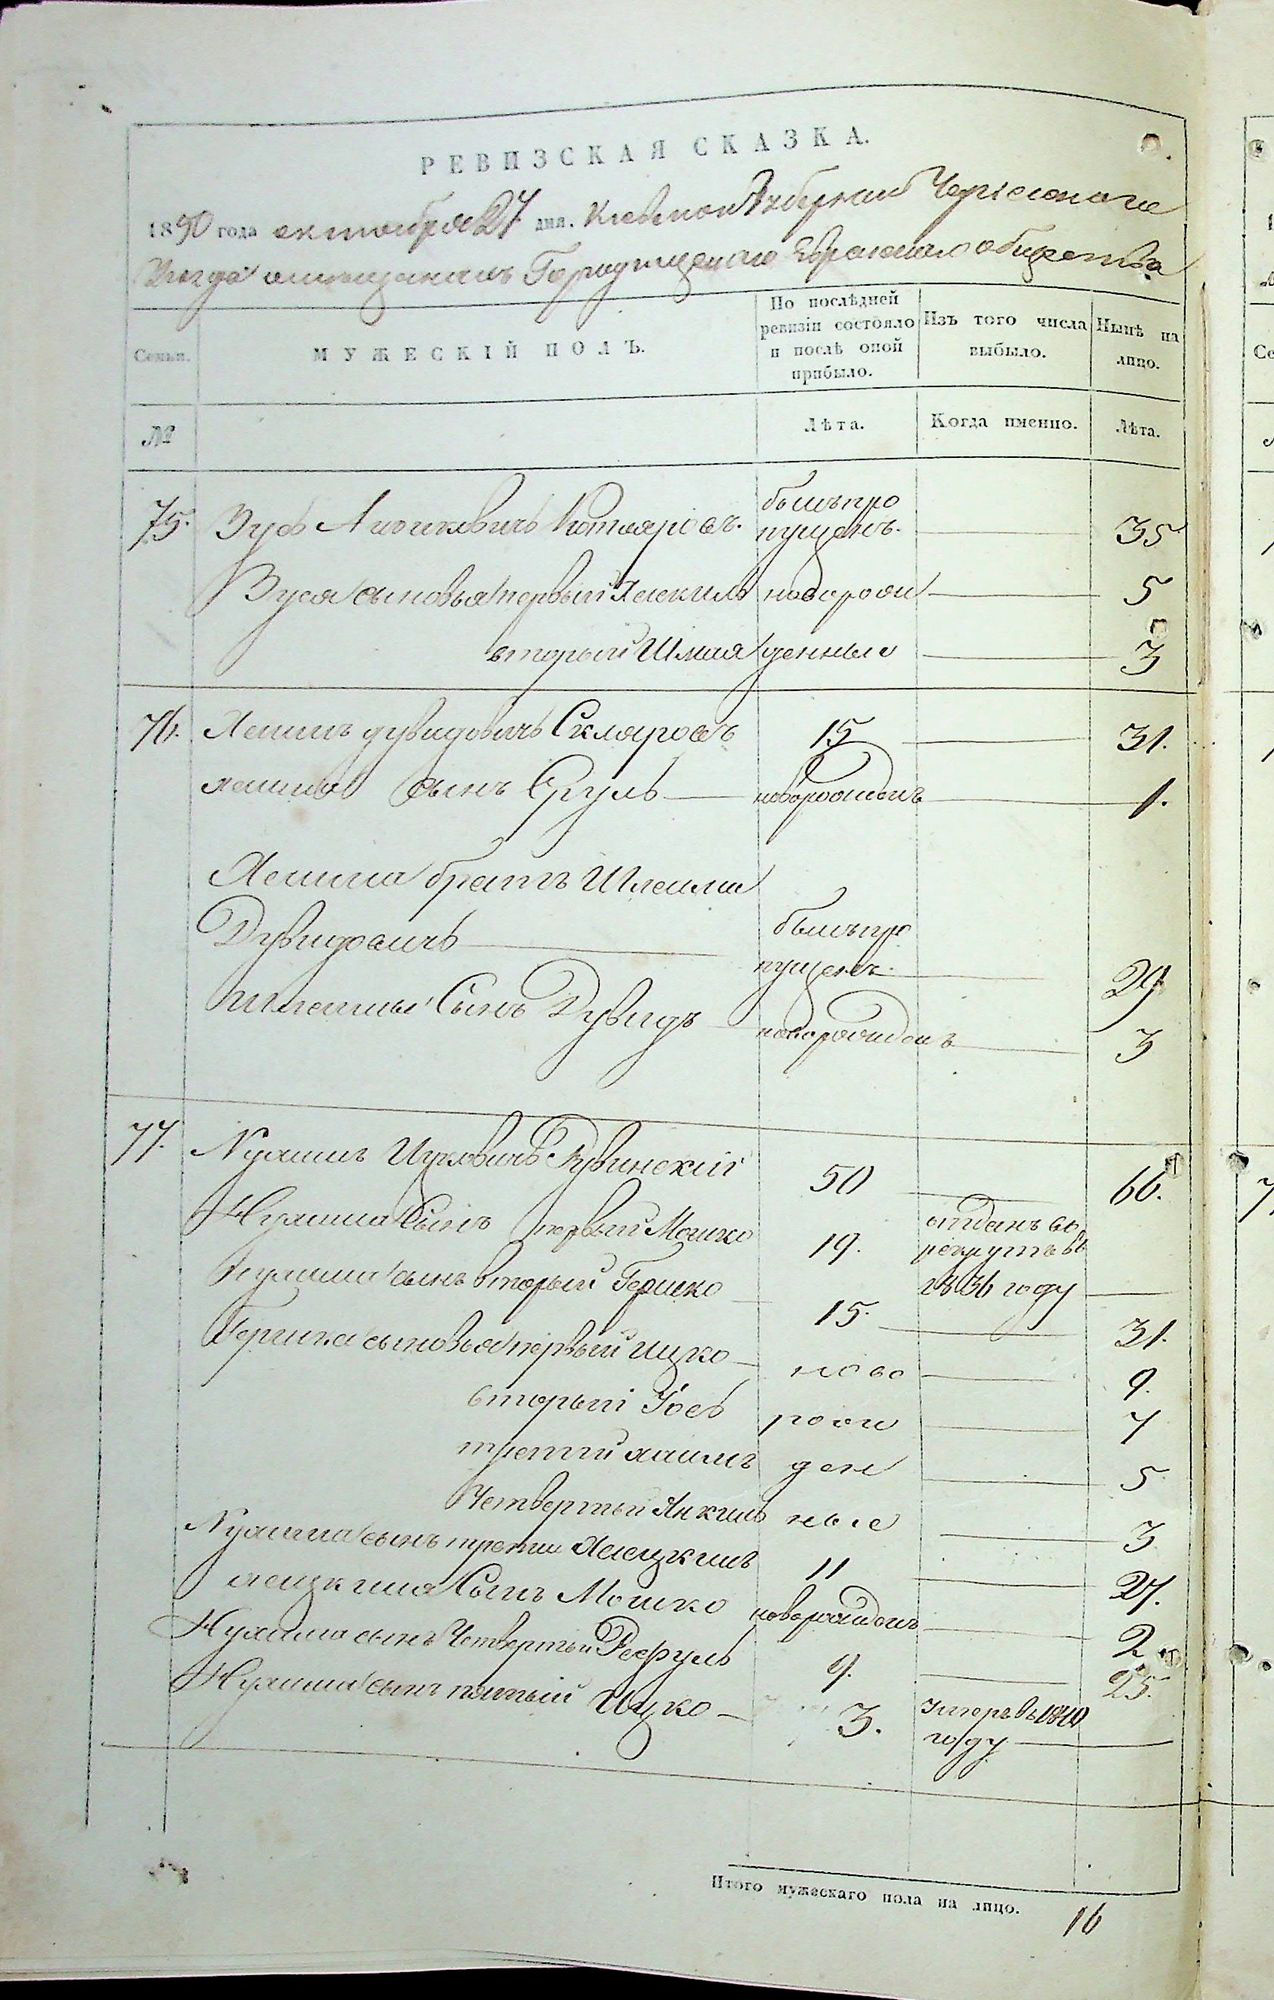 РЕВИЗСКАЯ СКАЗКА.
1850 года октября 27 дня. Киевской Губернии Черкаского
Уезда мещанъ Городищецкаго Еврейскаго общества
Семьи.
МУЖЕСКІЙ ПОЛЪ.
По послѣдней ревизіи состояло и послѣ оной прибыло.
Изъ того числа выбыло.
Нынѣ на лицо.
№ Лѣта. Когда именно. Лѣта.
75. Зусь Котляровъ. былъ пропущенъ. 35
Зуся сыновья первый Хаскиль новорож 5
вторый Шмая денные 3
76. Дувидовичъ Скляровъ 15 31.
сынъ Сруль новорожденъ 1.
братъ Шлеима
Дувидовичъ былъ пропущенъ. 29
Шлеимы Сынъ Дувидъ новорожденъ 3
77. Нухимъ Ицковичъ Рувинскій 50 66.
Нухима Сынъ первый Мошко 19. отданъ въ рекруты въ 1836 году
Нухима сынъ вторый Гершко 15. 31.
Гершка сыновья первый Ицко ново 9.
вторый Іосъ рож 7
третій Хаимъ ден 5
Четвертый Янкиль ные 3
Нухима сынъ третій 11 27.
Сынъ Мошко новорожденъ 2.
Нухима сынъ Четвертый 9. 25.
Нухима сынъ пятый Ицко 3. Умеръ въ 1840 году
Итого мужескаго пола на лицо. 16